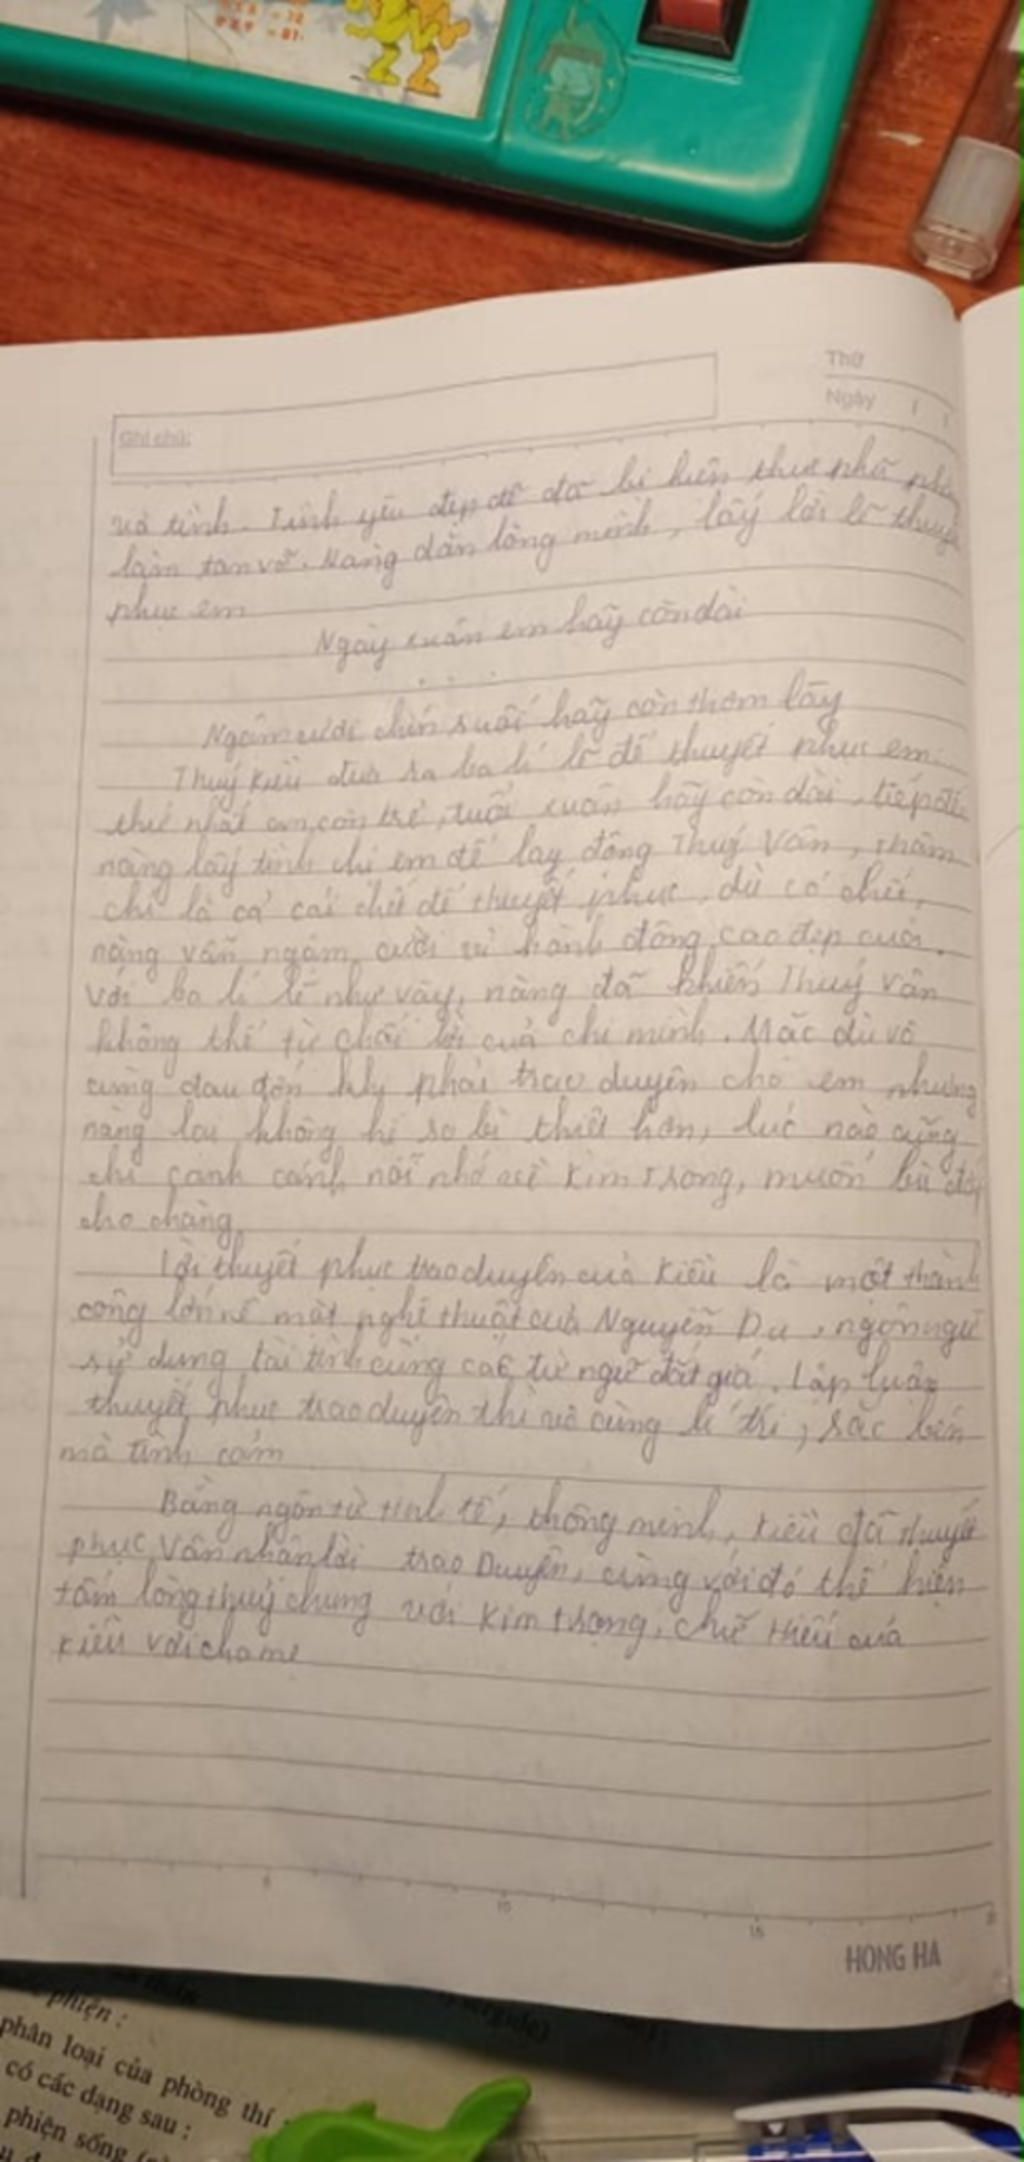 = 72
9 x 9 = 81
Thứ
Ngày / /
Ghi chú:
vô tình. Tình yêu đẹp đẽ đã bị hiện thực phũ
làm tan vỡ. Mang dằn lòng mình, lấy lời lẽ thuyết
phục em
Ngày xuân em hãy còn dài
. . .
Ngậm cười chín suối hãy còn thơm lây
Thuý Kiều đưa ra ba lí lẽ để thuyết phục em:
thứ nhất em còn trẻ, tuổi xuân hãy còn dài, tiếp đến
nàng lấy tình chị em để lay động Thuý Vân, thậm
chí là cả cái chết để thuyết phục, dù có chết,
nàng vẫn ngậm cười vì hành động cao đẹp
Với ba lí lẽ như vậy, nàng đã khiến Thuý Vân
không thể từ chối lời của chị mình. Mặc dù vô
cùng đau đớn khi phải trao duyên cho em nhưng
nàng lại không hề so bì thiệt hơn, lúc nào cũng
chỉ canh cánh nỗi nhớ về Kim Trọng, muốn bù đắp
cho chàng
Lời thuyết phục trao duyên của Kiều là một thành
công lớn về mặt nghệ thuật của Nguyễn Du, ngôn ngữ
sử dụng tài tình cùng các từ ngữ đắt giá. Lập luận
thuyết phục trao duyên thì vô cùng lí trí, sắc bén
mà tình cảm
Bằng ngôn từ tinh tế, thông minh, Kiều đã thuyết
phục Vân nhận lời trao Duyên, cùng với đó thể hiện
tấm lòng thuỷ chung với Kim trọng, chữ Hiếu của
Kiều với cha mẹ
5 10 15
HONG HA
phiện :
phân loại của phòng thí
có các dạng sau :
phiện sống